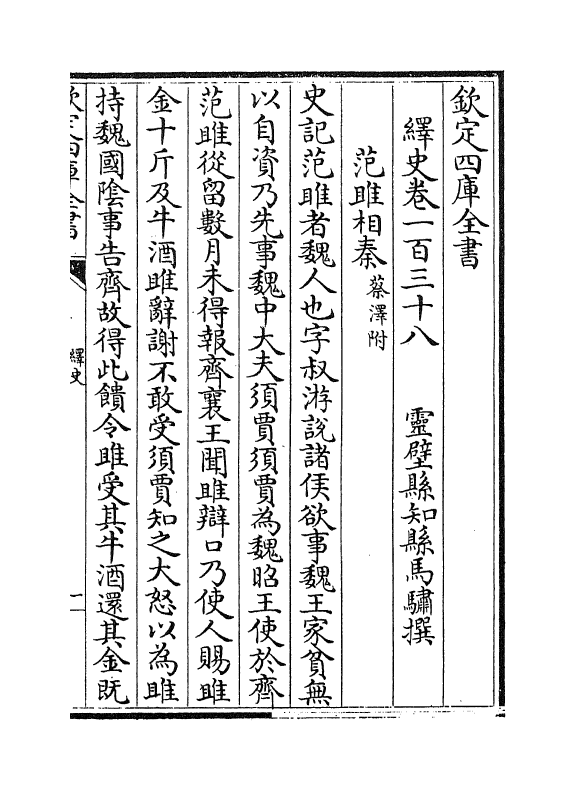 欽定四庫全書
繹史卷一百三十八　靈壁縣知縣馬驌撰
范雎相秦蔡澤附
史記范雎者魏人也字叔游說諸侯欲事魏王家貧無
以自資乃先事魏中大夫須賈須賈為魏昭王使於齊
范雎從留數月未得報齊襄王聞雎辯口乃使人賜雎
金十斤及牛酒雎辭謝不敢受須賈知之大怒以為雎
持魏國陰事告齊故得此饋令雎受其牛酒還其金既
欽定四庫全書
繹史
一